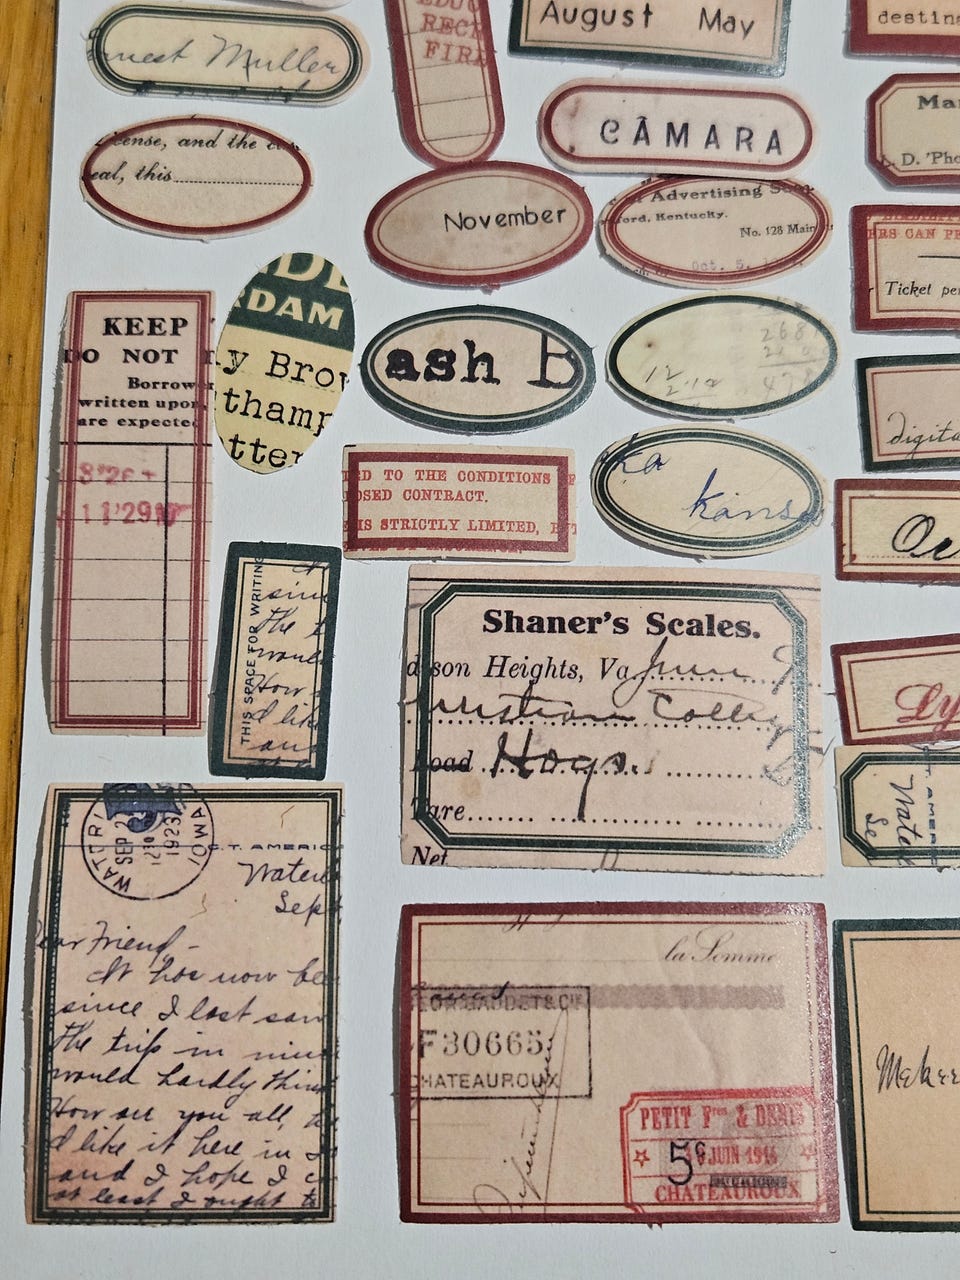 Ernest Muller
EDUC
RECT
FIRE
August May
destina
cense, and the
eal, this
CÂMARA
Ma
D. 'Pho
November
Advertising
ford, Kentucky.
No. 128 Main
Oct. 5,
ERS CAN PE
Ticket per
KEEP
DO NOT
Borrower
written upon
are expected
8'26
11'29
DAM
y Brow
thamp
tter
ash B
268
12
2.12
478
ka
kansa
digita
ED TO THE CONDITIONS OF
OSED CONTRACT.
IS STRICTLY LIMITED, BUT
Or
THIS SPACE FOR WRITING
sinc
the t
would
How
I lik
and
Shaner's Scales.
dison Heights, Va.
Christian Colley
Load Hogs.
Tare
Net
Ly
AMERI
Wate
Se
WATERL
IOWA
SEP 2
1923
C.T. AMERIC
Waterl
Sept
Dear Friend -
It has now bee
since I last saw
the trip in
would hardly think
How are you all,
I like it here in
and I hope I c
at least I ought to
la Somme
GAUDET & CIE
F30665
CHATEAUROUX
PETIT Fres & DENIS
5c JUIN 1914
CHATEAUROUX